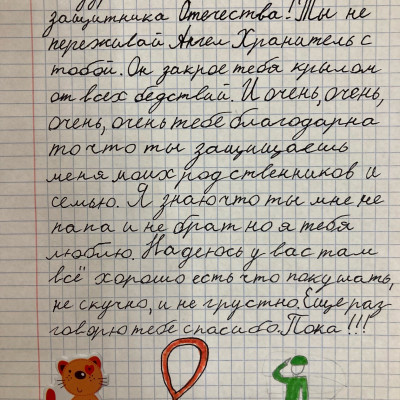 защитника Отечества! Ты не
переживай Ангел Хранитель с
тобой. Он закроет тебя крылом
от всех бедствий. И очень, очень,
очень, очень тебе благодарна
то что ты защищаешь
меня моих родственников и
семью. Я знаю что ты мне не
папа и не брат но я тебя
люблю. Надеюсь у вас там
всё хорошо есть что покушать,
не скучно, и не грустно. Еще раз
говорю тебе спасибо. Пока!!!